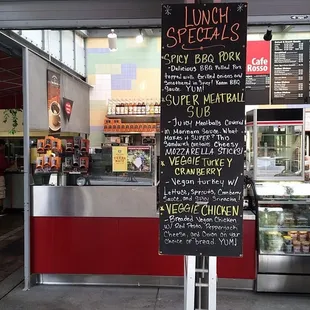 LUNCH
SPECIALS
SPICY BBQ PORK
-Delicious BBQ Pulled Pork
topped with Grilled onions
and Smothered in Spicy Korean BBQ
Sauce YUM!
SUPER MEATBALL
SUB
-Meatballs Covered
In Marinara Sauce. What
Makes it SUPER? This
Sandwich contains Onions
Cheesy
MOZZARELLA STICKS!
VEGGIE TURKEY
CRANBERRY
- Vegan turkey w/
Lettuce, Sprouts, Cranberry
Sauce, and spicy Sriracha!
VEGGIE CHICKEN
- Breaded Vegan Chicken
w/ Red Pesto, Pepperjack
Cheese, and Onion on your
choice of bread. YUM!
Cafe
Rosso